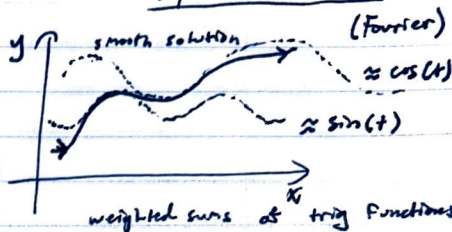 (Fourier)
y
smooth solution
≈ cos(t)
≈ sin(t)
x
weighted sums of trig functions